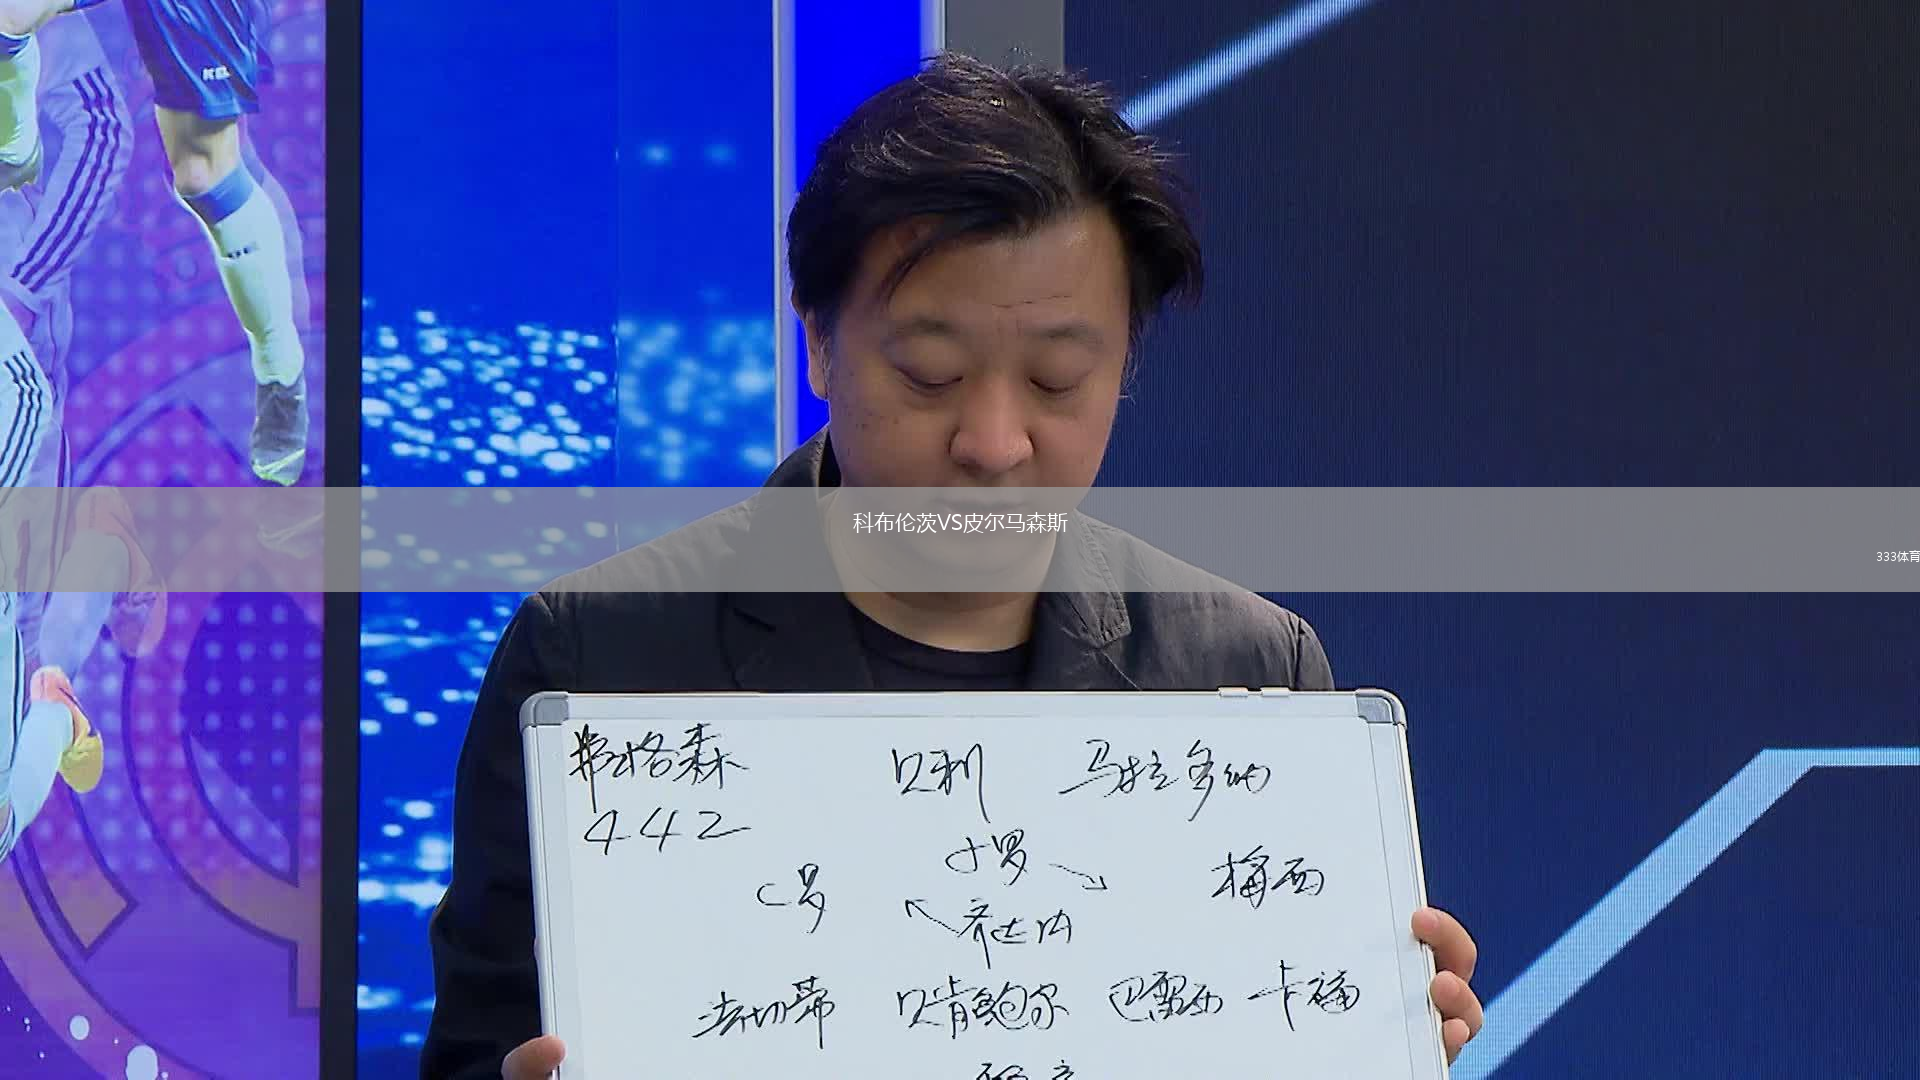 科布伦茨VS皮尔马森斯
333体育
弗格森 贝利 马拉多纳
442
C罗 小罗 梅西
齐达内
法切蒂 贝肯鲍尔 巴雷西 卡福